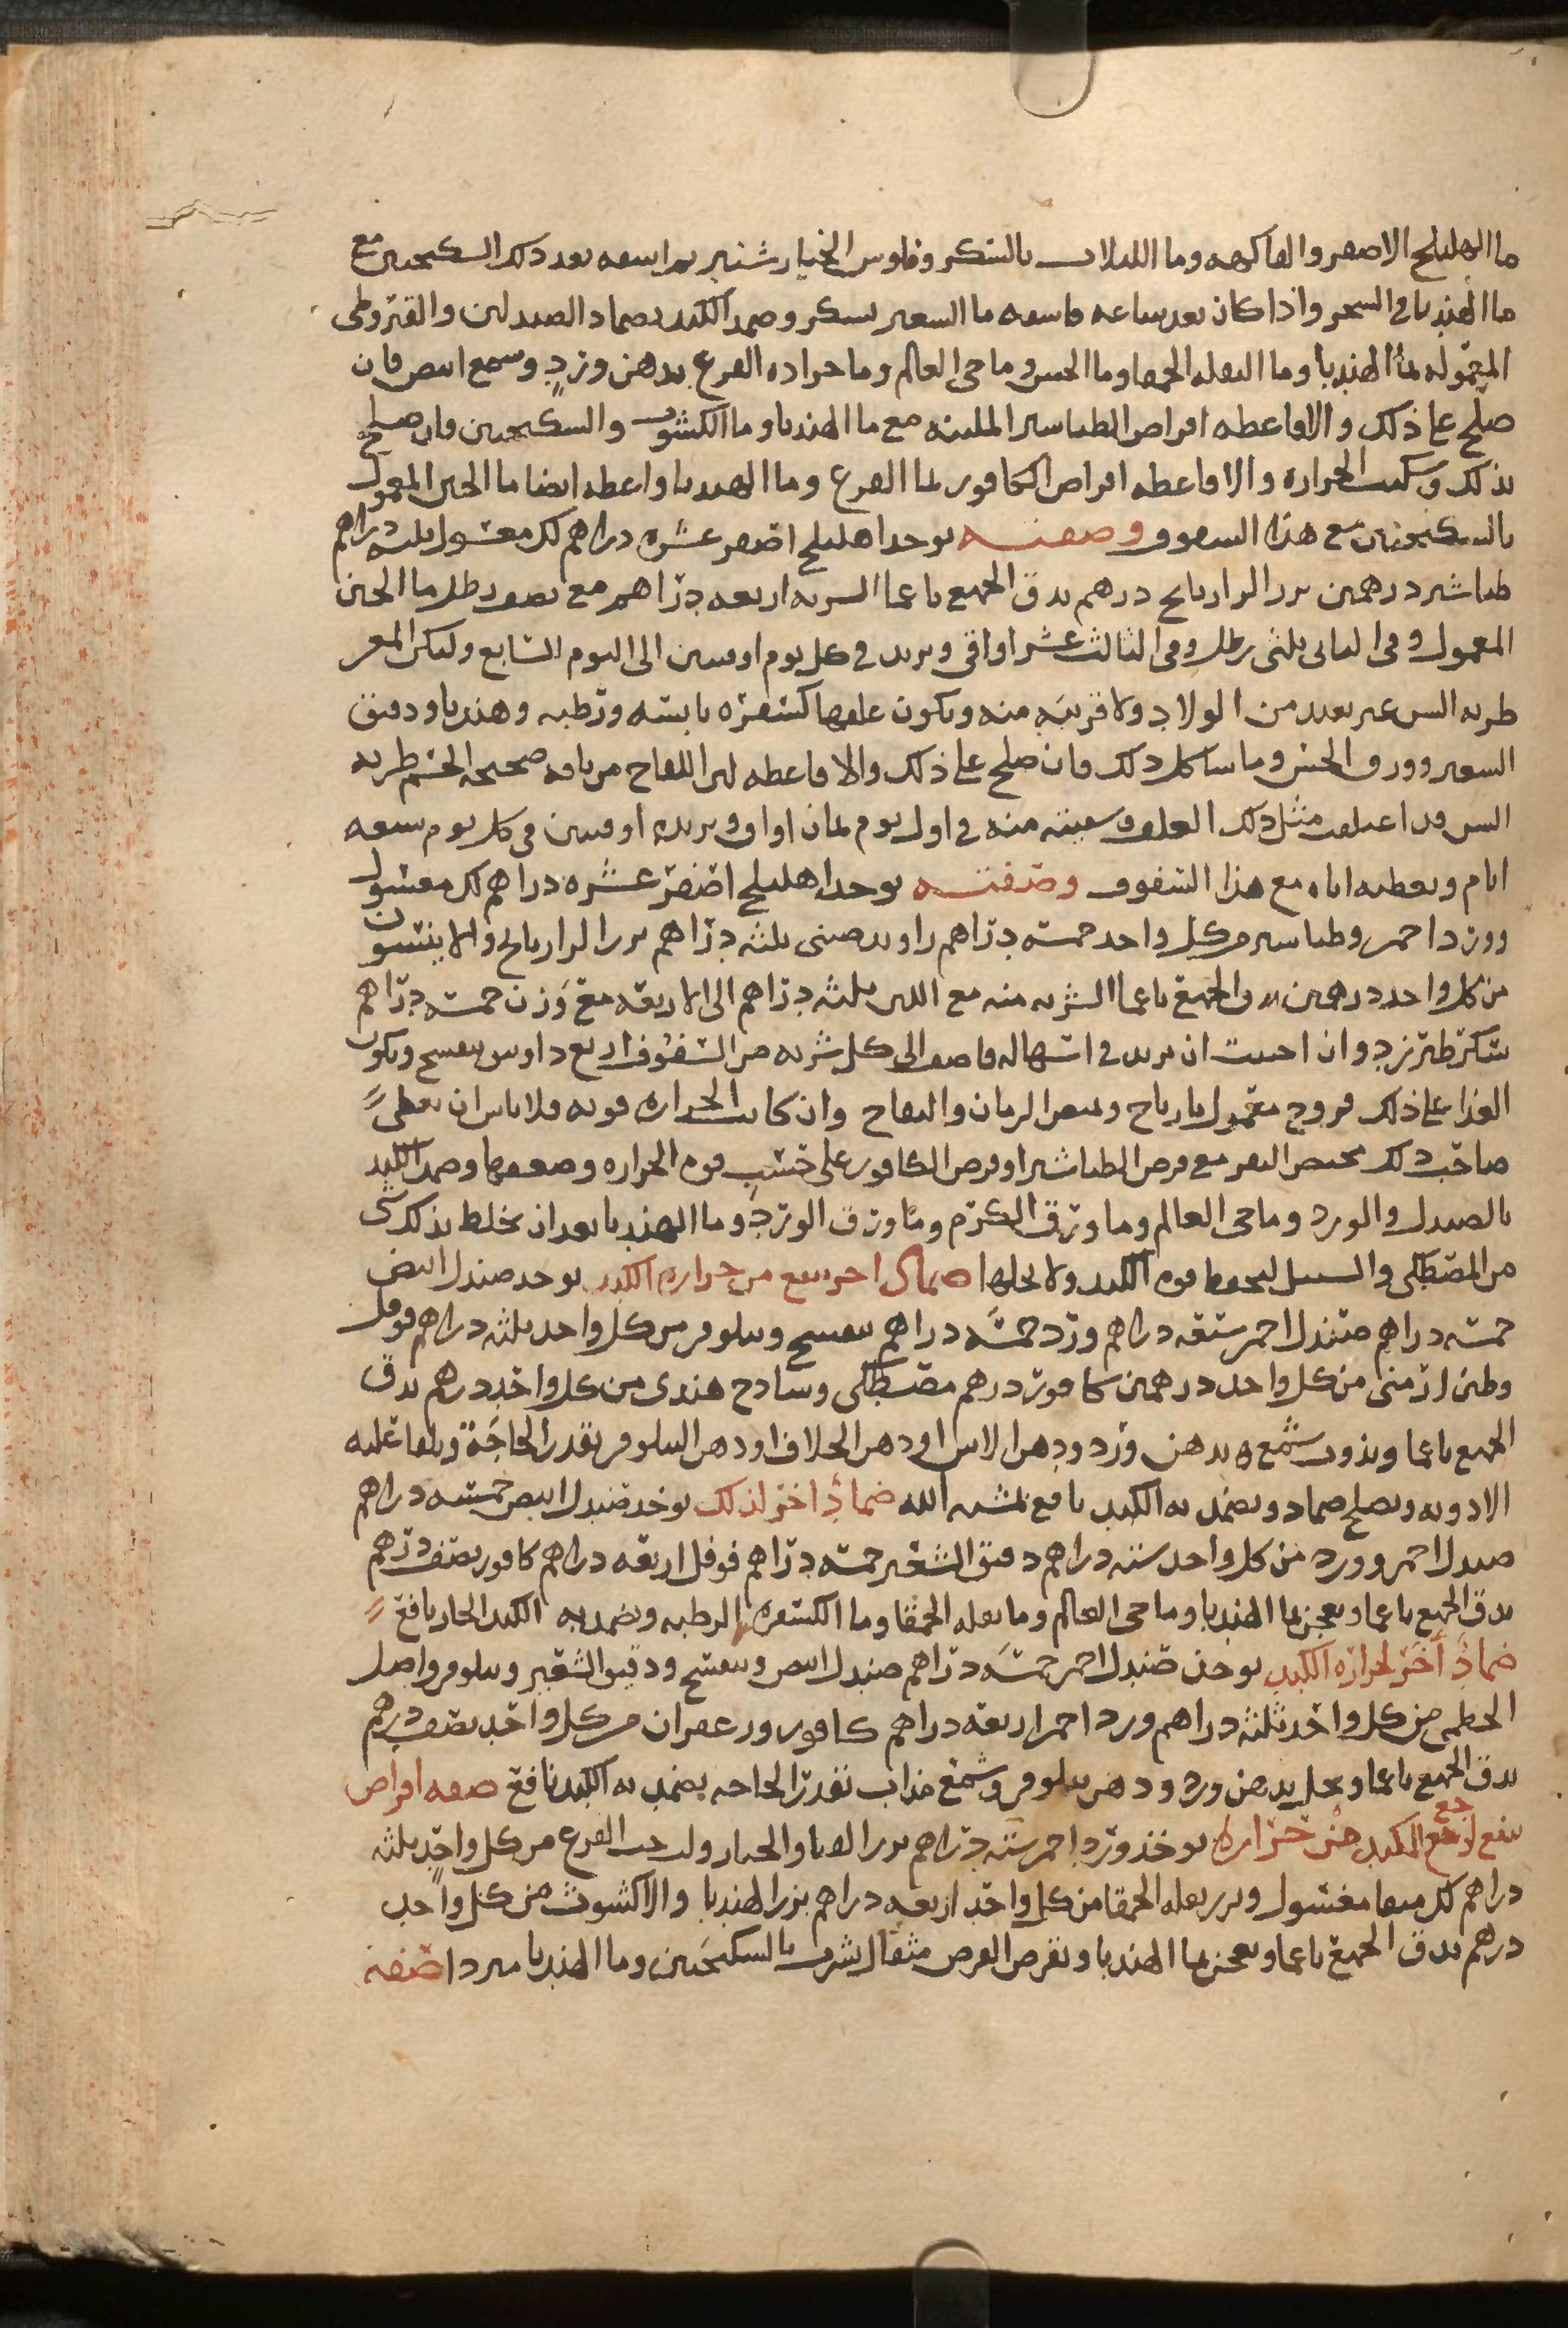 ما الهليلج الاصفر والفاكهه وما اللبلاب بالسكر وفلوس الخيارشنبر ثم اسقه بعد ذلك السكنجبين مع
ما الهندبا في السحر واذا كان بعد ساعه فاسقه ما الشعير بسكر وضمد الكبد بضماد الصندلين والقيروطي
المعموله بما الهندبا وما البقله الحمقا وما الخس وما حي العالم وما جراده القرع بدهن ورد وشمع ابيض فان
صلح علي ذلك والا فاعطه اقراص الطباشير الملينه مع ما الهندبا وما الكشوث والسكنجبين فان صلح
بذلك وسكنت الحراره والا فاعطه اقراص الكافور بما القرع وما الهندبا واعطه ايضا ما الجبن المعمول
بالسكنجبين مع هذا السفوف وصفته يوخذ اهليلج اصفر عشره دراهم لك مغسول ثلثه دراهم
طباشير درهمين بزر الرازيانج درهم يدق الجميع ناعما الشربه اربعه دراهم مع نصف رطل ما الجبن
المعمول وفي الثاني ثلثي رطل وفي الثالث عشر اواقي ويزيد في كل يوم اوقيتين الى اليوم السابع ولتكن المعز
طريه السن غير بعيده من الولاد ولا قريبه منه ويكون علفها كسفره يابسه ورطبه وهندبا ودقيق
الشعير وورق الخس وما شاكل ذلك فان صلح علي ذلك والا فاعطه لبن اللقاح من ناقه صحيحه الجسم طريه
السن قد اعتلفت مثل ذلك العلف وسقيته منه في اول يوم ثمان اواق ويزيده اوقيتين في كل يوم سبعه
ايام ويعطيه اياه مع هذا السفوف وصفته يوخذ اهليلج اصفر عشره دراهم لك مغسول
وورد احمر وطباشير من كل واحد خمسه دراهم راوند صيني ثلثه دراهم بزر الرازيانج والانيسون
من كل واحد درهمين يدق الجميع ناعما الشربه منه مع اللبن ثلثه دراهم الى الاربعه مع وزن خمسه دراهم
سكر طبرزد وان احببت ان يزيد في اسهاله فاضف الى كل شربه من السفوف اربع دوانيق بنفسج ويكون
الغذا علي ذلك فروج معمول بازيرباج وبعصر الرمان والتفاح وان كانت الحراره قويه فلا باس ان يعطى
صاحب ذلك مخيض البقر مع قرص الطباشير او قرص الكافور على حسب قوه الحراره وضعفها وضمد الكبد
بالصندل والورد وما حي العالم وما ورق الكرم وما ورق الورد وما الهندبا بعد ان تخلط بذلك شى
من المصطكى والسنبل ليحفظ قوه الكبد ولا يحلها ضماد اخر ينفع من حراره الكبد يوخذ صندل ابيض
خمسه دراهم صندل احمر سبعه دراهم ورد خمسه دراهم بنفسج ونيلوفر من كل واحد ثلثه دراهم فوفل
وطين ارمني من كل واحد درهمين كافور درهم مصطكى وسادج هندى من كل واحد درهم يدق
الجميع ناعما ويذوب شمع ه بدهن ورد ودهن الاس او دهن الخلاف او دهن النيلوفر بقدر الحاجه ويلقا عليه
الادويه ويصلح ضماد ويضمد به الكبد نافع بمشيه الله ضماد اخر لذلك يوخذ صندل ابيض خمسه دراهم
صندل احمر وورد من كل واحد سته دراهم دقيق الشعير خمسه دراهم فوفل اربعه دراهم كافور نصف درهم
يدق الجميع ناعما ويعجن بما الهندبا وما حي العالم وما بقله الحمقا وما الكسفره الرطبه ويضمد به الكبد الحار نافع
ضماد اخر لحراره الكبد يوخذ صندل احمر خمسه دراهم صندل ابيض وبنفسج ودقيق الشعير ونيلوفر واصل
الخطمي من كل واحد ثلثه دراهم ورد احمر اربعه دراهم كافور وزعفران من كل واحد نصف درهم
يدق الجميع ناعما ويحل بدهن ورد ودهن نيلوفر وشمع مذاب بقدر الحاجه يضمد به الكبد نافع صفه اقراص
ينفع لوجع الكبد من حراره يوخذ ورد احمر سته دراهم بزر القثا والخيار ولب حب القرع من كل واحد ثلثه
دراهم لك منقا مغسول وبزر بقله الحمقا من كل واحد اربعه دراهم بزر الهندبا والاكشوث من كل واحد
درهم يدق الجميع ناعما ويعجن بما الهندبا ويقرص القرص مثقال يشرب بالسكنجبين وما الهندبا مبردا صفه